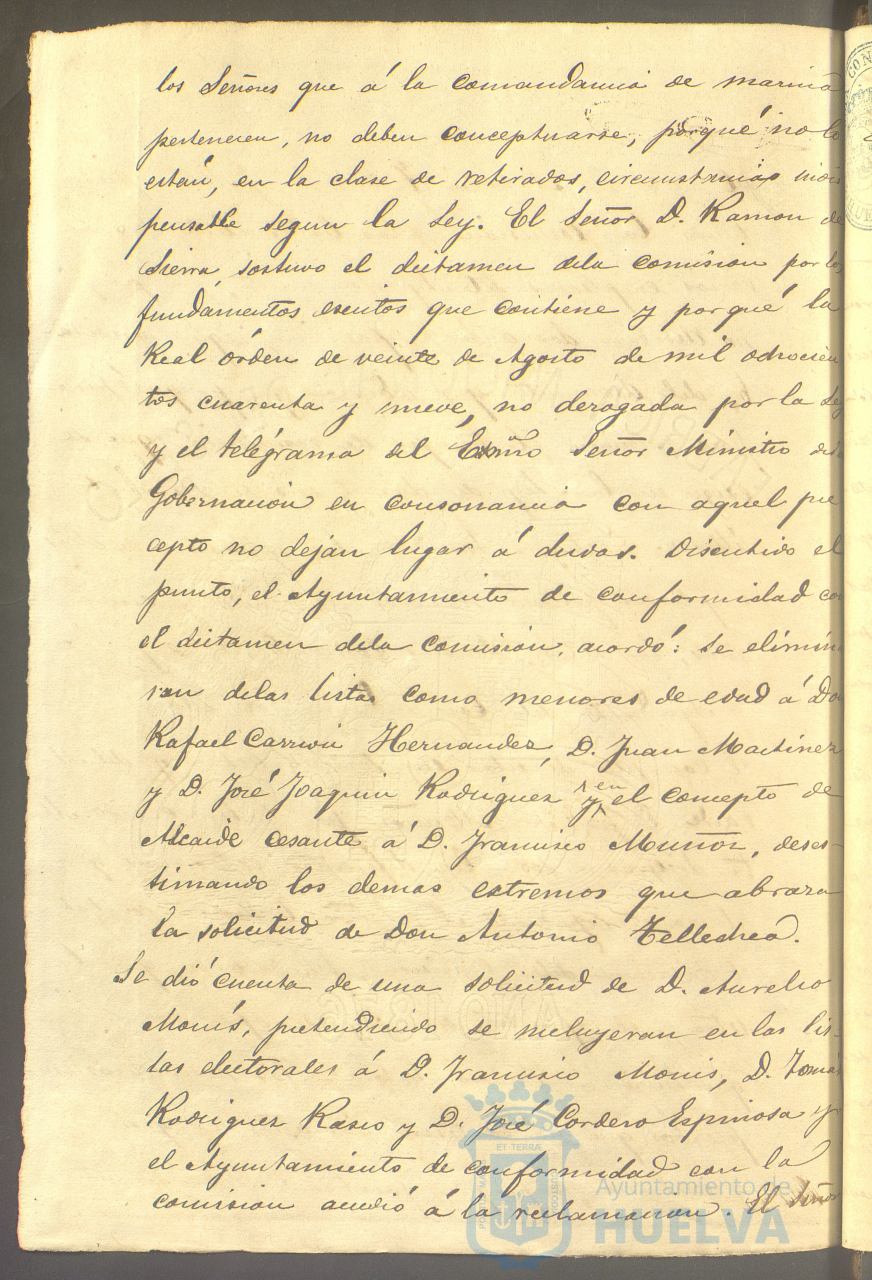 los Señores que á la comandancia de marina
pertenecen, no deben conceptuarse, porqué no lo
están, en la clase de retirados, circunstancia indis
pensable segun la Ley. El Señor D. Ramon de
Sierra, sostuvo el dictamen dela comision por los
fundamentos escritos que contiene y porqué la
Real órden de veinte de Agosto de mil ochocien
tos cuarenta y nueve, no derogada por la Ley
y el telégrama del Exmo Señor Ministro dela
Gobernacion en consonancia con aquel pre
cepto no dejan lugar á dudas. Discutido el
punto, el Ayuntamiento de conformidad con
el dictamen dela comision, acordó: Se elimina
ran delas listas como menores de edad á Don
Rafael Hernandez, D. Juan Martinez
y D. José Joaquin Rodriguez y en el concepto de
Alcaide cesante á D. Francisco Muñoz, deses-
timando los demas estremos que abraza
la solicitud de Don Antonio Tellechea.
Se dió cuenta de una solicitud de D. Aurelio
Monís, pretendiendo se incluyeran en las lis-
tas electorales á D. Francisco Monis, D. Tomás
Rodriguez Rasco y D. José Cordero Espinosa y
el Ayuntamiento de conformidad con la
comision accedió á la reclamacion. El Señor
ET TERRÆ
Ayuntamiento de
HUELVA